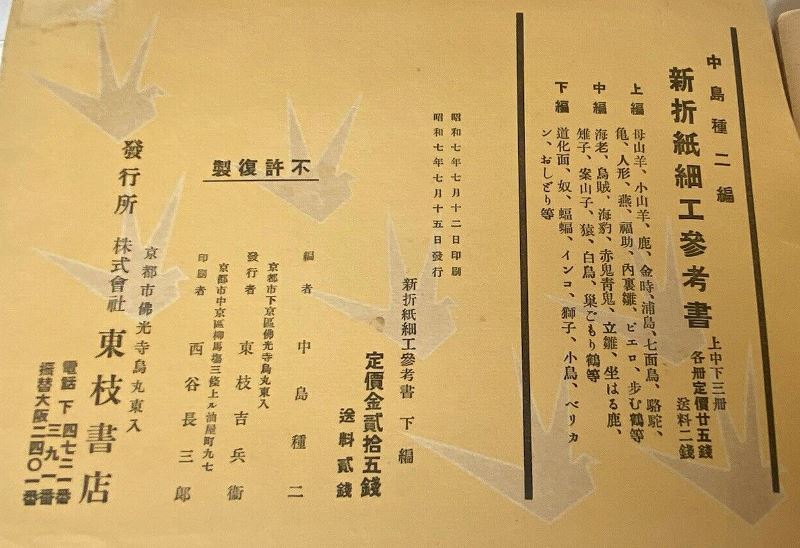 中島種二編
新折紙細工參考書
上中下三册
各册定價廿五錢
送料二錢
上編 母山羊、小山羊、鹿、金時、浦島、七面鳥、駱駝、
龜、人形、燕、福助、內裏雛、ピエロ、步む鶴等
中編 海老、烏賊、海豹、赤鬼靑鬼、立雛、坐はる鹿、
雉子、案山子、猿、白鳥、巢ごもり鶴等
下編 道化面、奴、蝙蝠、インコ、獅子、小鳥、ペリカ
ン、おしどり等
昭和七年七月十二日印刷
昭和七年七月十五日發行
新折紙細工參考書 下編
定價金貳拾五錢
送料貳錢
不許復製
編者 中島種二
京都市下京區佛光寺烏丸東入
發行者 東枝吉兵衞
京都市中京區柳馬塲三條上ル油屋町九七
印刷者 西谷長三郎
京都市佛光寺烏丸東入
發行所 株式會社 東枝書店
電話下四七二一番
三九一番
振替大阪二四〇一番